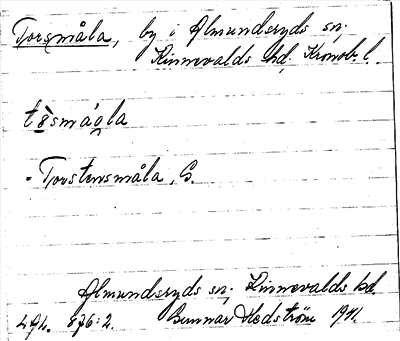 Torsmåla, by i Almundsryds sn,
Kinnevalds hd, Kronob. l.
tòsmá̱o̯la
= Torstensmåla, G.
Almundsryds sn, Kinnevalds hd.
876:2. Gunnar Hedström 1911.